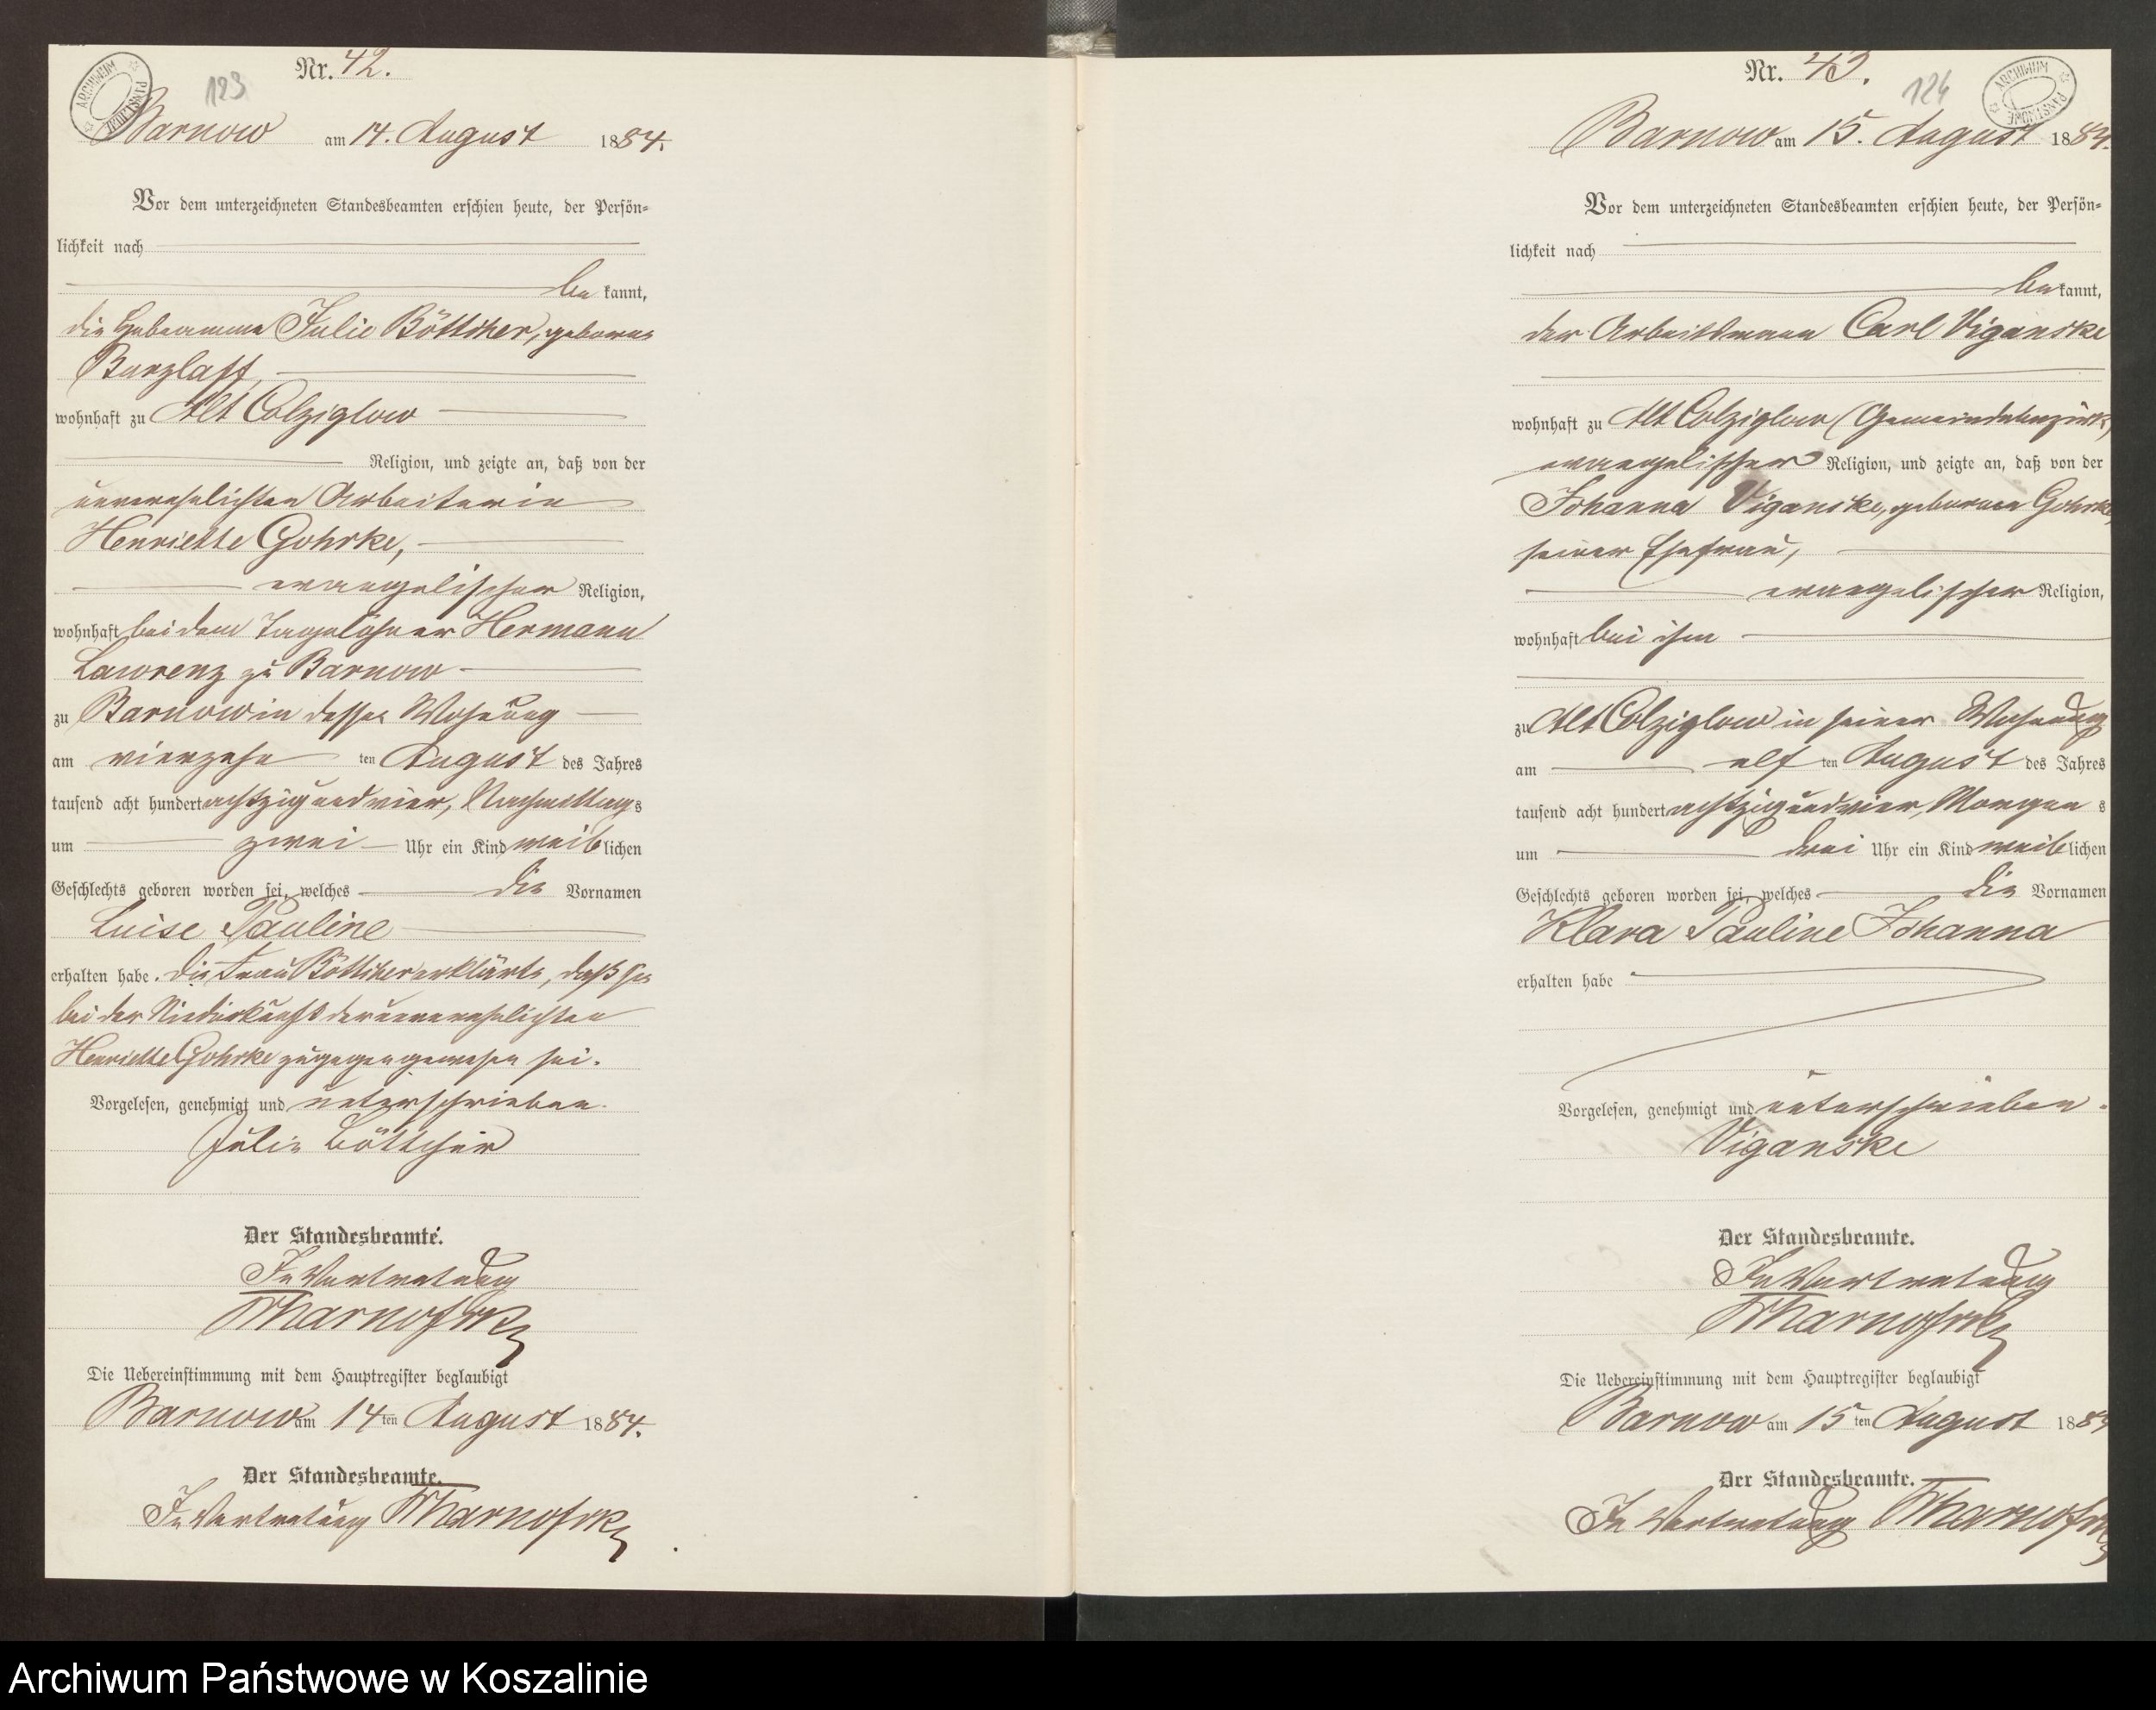 Nr. 42.
123
Barnow am 14. August 1884.
Vor dem unterzeichneten Standesbeamten erschien heute, der Persön-
lichkeit nach
be kannt,
die Hebeamme Julie Böttcher, geborne
Barzlaff,
wohnhaft zu Alt Colziglow
Religion, und zeigte an, daß von der
unverehelichten Arbeiterin
Henriette Gohrke,
evangelischer Religion,
wohnhaft bei dem Tagelöhner Hermann
Lawrenz zu Barnow
zu Barnow in dessen Wohnung
am vierzehn ten August des Jahres
tausend acht hundert achtzig und vier, Nachmittags
um zwei Uhr ein Kind weiblichen
Geschlechts geboren worden sei, welches die Vornamen
Luise Pauline
erhalten habe. Die Frau Böttcher erklärte, daß sie
bei der Niederkunft der unverehelichten
Henriette Gohrke zugegen gewesen sei.
Vorgelesen, genehmigt und unterschrieben.
Julie Böttcher
Der Standesbeamte.
In Vertretung
Die Uebereinstimmung mit dem Hauptregister beglaubigt
Barnow am 14ten August 1884.
Der Standesbeamte.
In Vertretung
Nr. 43.
124
ARCHIWUM PAŃSTWOWE
Barnow am 15. August 1884.
Vor dem unterzeichneten Standesbeamten erschien heute, der Persön-
lichkeit nach
be kannt,
der Arbeitsmann Carl Viganske
wohnhaft zu Alt Colziglow (Gemeindebezirk)
evangelischer Religion, und zeigte an, daß von der
Johanna Viganske, geborenen Gohrke,
seiner Ehefrau,
evangelischer Religion,
wohnhaft bei ihm
zu Alt Colziglow in seiner Wohnung
am elf ten August des Jahres
tausend acht hundert achtzig und vier, Morgens
um drei Uhr ein Kind weiblichen
Geschlechts geboren worden sei, welches die Vornamen
Klara Pauline Johanna
erhalten habe
Vorgelesen, genehmigt und unterschrieben.
Viganske
Der Standesbeamte.
In Vertretung
Die Uebereinstimmung mit dem Hauptregister beglaubigt
Barnow am 15ten August 1884
Der Standesbeamte.
In Vertretung
Archiwum Państwowe w Koszalinie